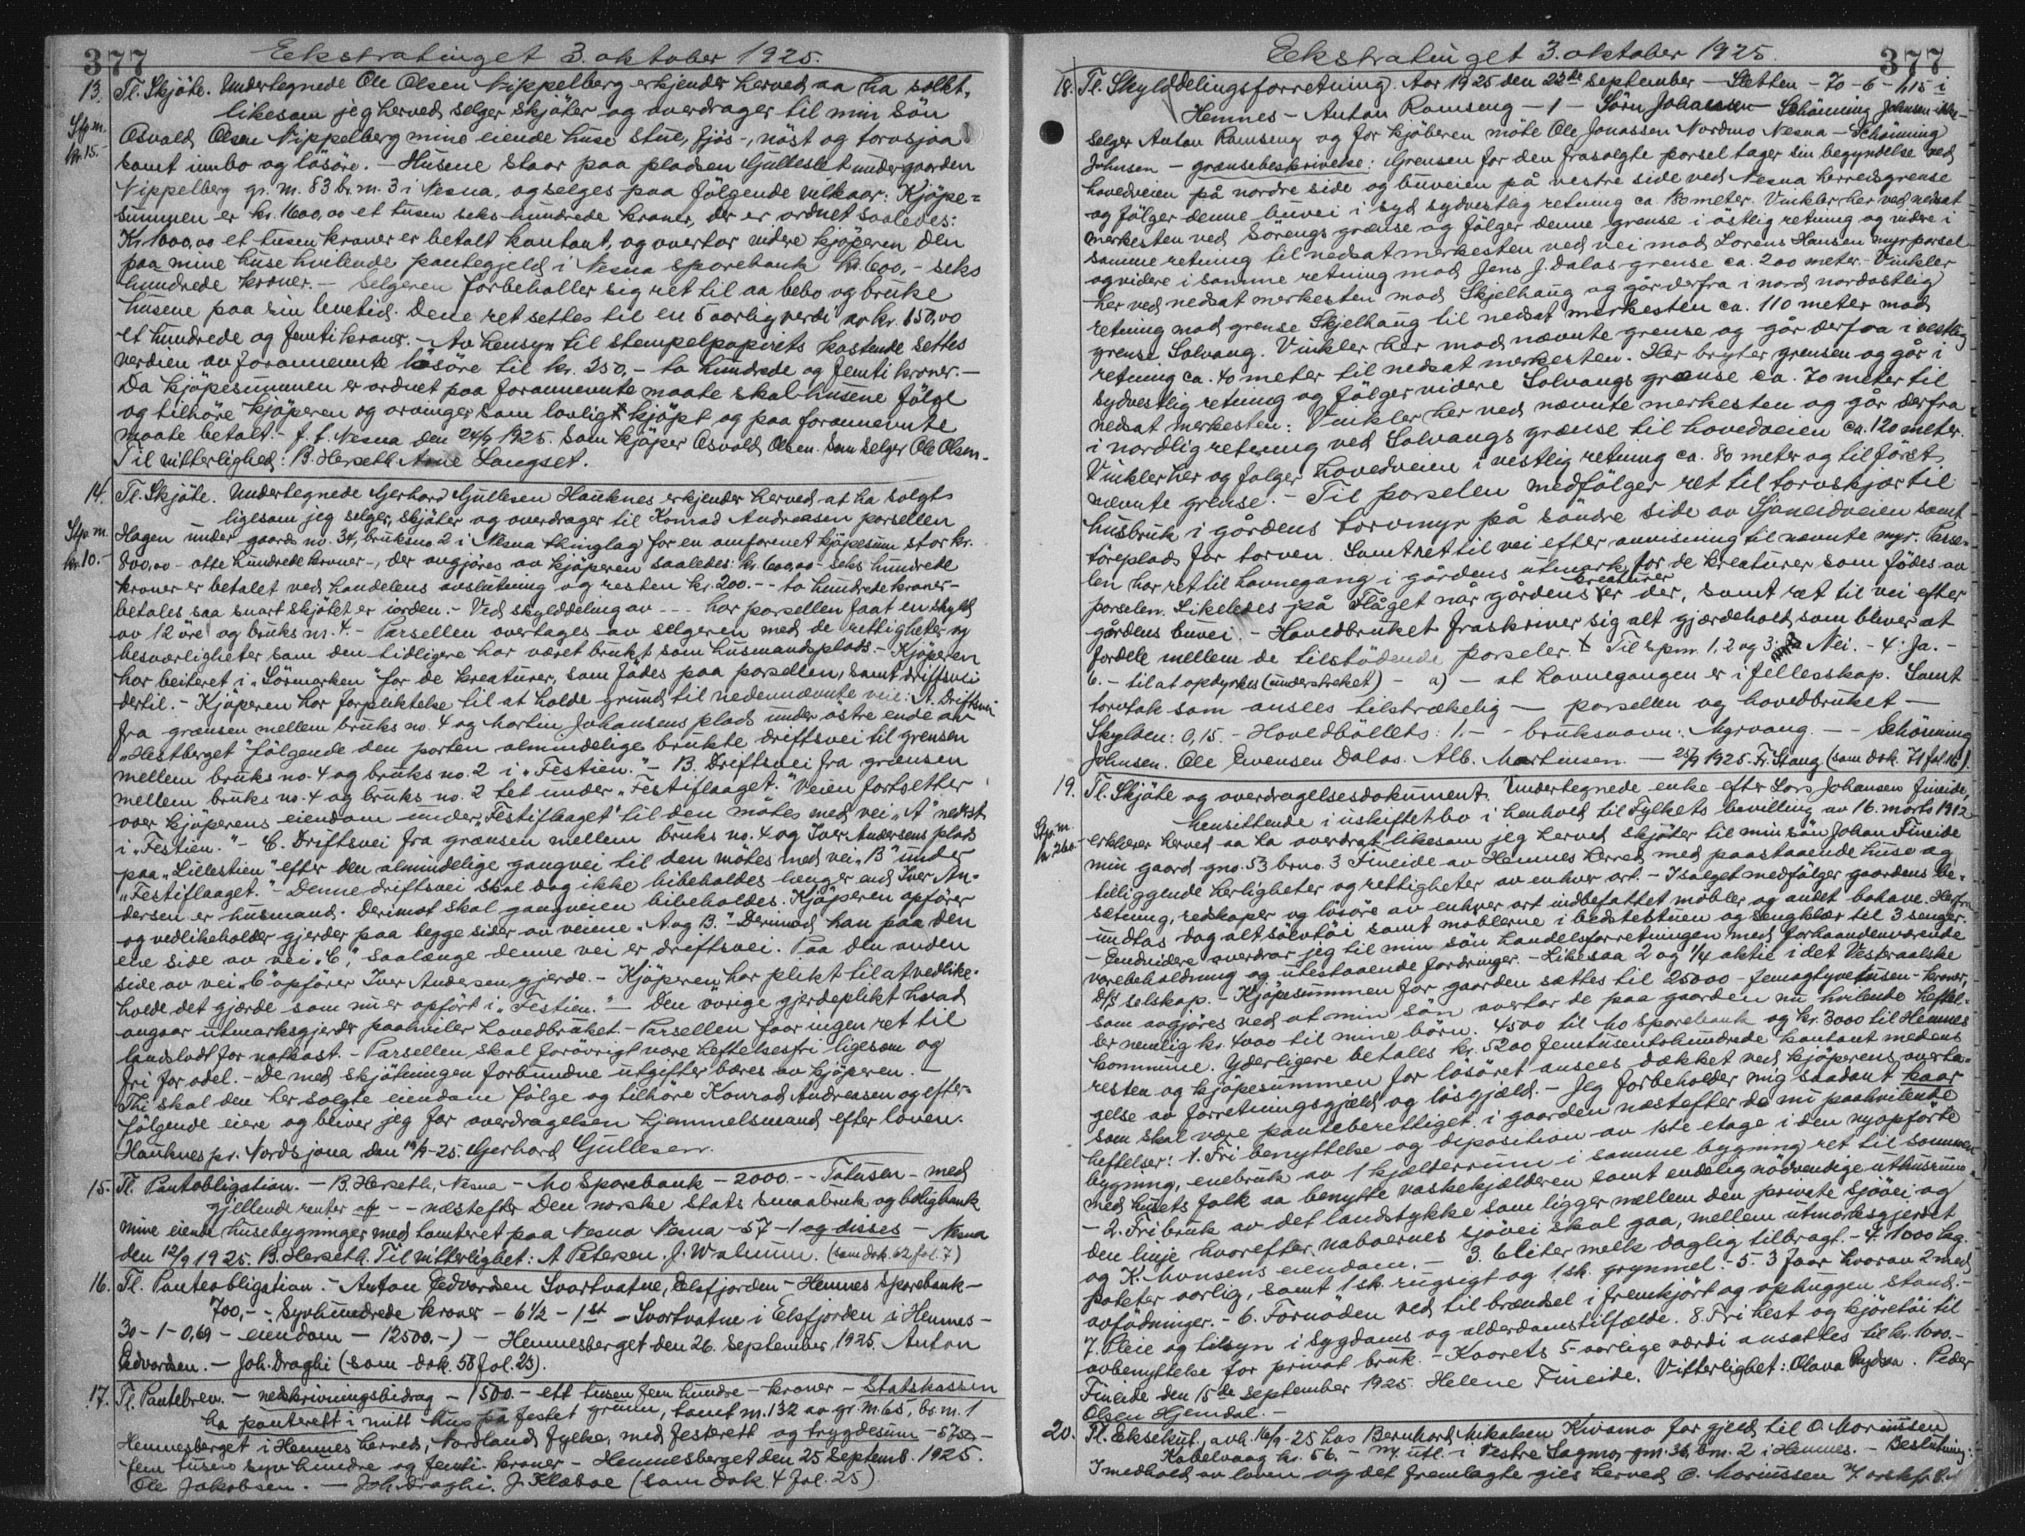 377
Eekstratinget 3. oktober 1925.
13. Tl. Skjöte. Undertegnede Ole Olsen Nippelberg erkjender herved aa ha solgt,
likesom jeg herved selger skjöter og overdrager til min Sön
Stp.m. kr. 15.-
Osvald Olsen Nippelberg mine eiende huse stue, fjös-, nöst og torvsjaa
samt innbo og lösöre. - Husene staar paa pladsen Gulleslet under gaarden
Nippelberg gr. m. 83 br. m. 3 i Nesna, og selges paa fölgende velkaar: Kjöpe=
summen er kr. 1600,00 et tusen seks hundrede kroner, der er ordnet saaledes:
Kr. 1000,00 et tusen kroner er betalt kontant, og overtar videre kjöperen den
paa mine huse hvilende pantegjeld i Nesna sparebank kr. 600,- seks
hundrede kroner. - Selgeren forbeholler sig ret til aa bebo og bruke
husene paa sin levetid. Dene ret settes til en 5 aarlig verdi av kr. 150,00
et hundrede og femti kroner. - Av hensyn til stempelpapirets kostende settes
verdien av forannevnte lösöre til kr. 250,- to hundrede og femti kroner. -
Da kjöpesummen er ordnet paa forannevnte maate skal husene fölge
og tilhöre kjöperen og arvinger som lovligt kjöpt og paa forannevnte
maate betalt. - f. t. Nesna den 24/9 1925. Som kjöper Osvald Olsen. Som selger Ole Olsen.-
Til vitterlighed: B. Herseth Arne Langset.
14. Tl. Skjöte. Undertegnede Gerhard Gullesen Hauknes erkjender herved at ha solgt
ligesom jeg selger, skjöter og overdrager til Konrad Andreasen parsellen
Stp.m. kr. 10.-
Hagen under gaards no. 34, bruksno 2 i Nesna thinglag for en omforenet kjöpesum stor kr.
800,00 - otte hundrede kroner -, der avgjöres av kjöperen saaledes: kr. 600,00 - seks hundrede
kroner er betalet ved handelens avslutning og resten kr. 200.- - to hundrede kroner -
betales saa snart skjötet er iorden. - Ved skylddeling av - - - har parsellen faat en skyld
av 12 öre og bruks nr. 4. - Parsellen overtages av selgeren med de rettigheter og
besværligheter som den tidligere har været brukt som husmandsplads. - Kjöperen
har beiteret i "Sörmarken" for de kreaturer, som födes paa parsellen, samt driftsvei
dertil. - Kjöperen har forpliktelse til at holde grund til nedennævnte veie: A. Driftsvei
fra grænsen mellem bruks no. 4 og Martin Johansens plads under östre ende av
"Hestberget" fölgende den porten almindelige brukte driftsvei til grensen
mellem bruks no. 4 og bruks no. 2 i "Festien." - B. Driftsvei fra grænsen
mellem bruks no. 4 og bruks no. 2 tet under "Festiflaaget." Veien fortsetter
over kjöperens eiendom under "Festiflaaget" til den mötes med vei "A" nederst
i "Festien." - C. Driftsvei fra grænsen mellem bruks no. 4 og Iver Andersens plads
paa "Lillestien" efter den almindelige gangvei til den mötes med vei "B" under
"Festiflaaget." - Denne driftsvei skal dog ikke bibeholdes længer end Iver An-
dersen er husmand. Derimot skal gangveien bibeholdes. Kjöperen opförer
og vedlikeholder gjerder paa begge sider av veiene "A og B." Derimod han paa den
ene side av vei "C", saalænge denne vei er driftsvei. Paa den anden
side av vei "C" opförer Iver Andersen gjerde. - Kjöperen har plikt til at vedlike-
holde det gjerde som nu er opfört i "Festien." - Den övrige gjerdeplikt hvad
angaar utmarksgjerder paahviler hovedbruket. - Parsellen faar ingen ret til
landslodt for notkast. - Parsellen skal forövrigt være heftelsesfri ligesom og
fri for odel. - De med skjötningen forbundne utgifter bæres av kjöperen. -
Thi skal den her solgte eiendom fölge og tilhöre Konrad Andreasen og efter-
fölgende eiere og bliver jeg for overdragelsen hjemmelsmand efter loven.
Hauknes pr. Nordsjona den 19/9-25. Gerhard Gullesen.
15. Tl. Pantobligation. - B. Herseth, Nesna - Mo Sparebank - 2000.- - Totusen - med
gjellende renter af - - næstefter Den norske stats smaabruk og boligbank
mine eiende husebygninger med tomteret paa Nesna Nesna - 57 - 1 og disses - Nesna
den 12/9 1925. B. Herseth. Til vitterlighet: A Petersen. J. Walnum. (som dok. 62 fol. 7)
16. Tl. Panteobligation. - Anton Edvardsen Svartvatne, Elsfjorden - Hemnes Sparebank -
700,- - Syvhundrede kroner - 6 1/2 - 1st - Svortvatne i Elsfjorden i Hemnes -
30 - 1 - 0,69 - eiendom - 12500.-) - Hemnesberget den 26. September 1925. Anton
Edvardsen. - Joh. Draghi (som dok. 58 fol. 23).
17. Tl. Pantebrev. - nedskrivningsbidrag - 1500.- ett tusen fem hundre - kroner - Statskassen
ha panterett i mitt hus på festet grunn, tomt m. 132 av gr. m. 65, br. m. 1
Hemnesberget i Hemnes herred, Nordland fylke, med festerett og trygdesum - 5750 -
fem tusen syv hundre og femti kroner - Hemnesberget den 25 Septemb. 1925.
Ole Jakobsen. - Joh. Draghi. J. Klæboe (som dok 4 fol. 25)
Eekstratinget 3. oktober 1925.
377
18. Tl. Skylddelingsforretning. Aar 1925 den 22de September - Sletten - 70 - 6 - 1,15 i
Hemnes - Anton Ramseng - 1 - Sörn Johansen - Schönning Johnsen ikke -
selger Anton Ramseng og for kjöberen möte Ole Jonassen Nordmo Nesna - Schönning
Johnsen - grænsebeskrivelse: Grensen for den frasolgte parsel tager sin begyndelse ved
hovedveien på nordre side og buveien på vestre side ved Nesna herredsgrense
og fölger denne buvei i syd sydvestlig retning ca 180 meter. Vinkler her ved nedsat
merkesten ved Sörengs grense og fölger denne grense i östlig retning og videre i
samme retning til nedsat merkesten ved vei mod Lorens Hansen myrparsel
og videre i samme retning mod Jens J. Dalas grense ca. 200 meter. - Vinkler
her ved nedsat merkesten mod Skjelhaug og går derfra i nord nordostlig
retning mod grense Skjelhaug til nedsat merkesten ca. 110 meter mod
grense Solvang. Vinkler her mod nævnte grense og går derfra i vestlig
retning ca. 40 meter til nedsat merkesten. Her bryter grensen og går i
sydvestlig retning og fölger videre Solvangs grænse ca. 70 meter til
nedsat merkesten: Vinkler her ved nævnte merkesten og går derfra
i nordlig retning ved Solvangs grænse til hovedveien ca. 120 meter.
Vinkler her og fölger hovedveien i vestlig retning ca. 80 meter og til först
nævnte grense. - Til parselen medfölger ret til torvskjær til
husbruk i gårdens torvmyr på söndre side av Sjoneidveien samt
töreplads for torven. Samt ret til vei efter anvisning til nævnte myr. Parse-
len har ret til havnegang i gårdens utmark, for de kreaturer som födes av
parselen. Likeledes på Flåget når gårdens kreaturer er der, samt ret til vei efter
gårdens buvei. - Hovedbruket fraskriver sig alt gjærdehold som bliver at
fordele mellem de tilstödende parseler. + Til spm. 1, 2 og 3: Nei. - 4: Ja. -
6. - til at opdyrkes (understreket) - a) - at havnegangen er i fellesskap. Samt
torvtak som ansees tilstrækelig - parsellen og hovedbruket -
Skylden: 0,15. - Hovedböllets: 1.- - bruksnavn: Myrvang - - Schönning
Johnsen. Ole Evensen Dalos. Alb. Martinsen. - 25/9 1925. Fr. Stang (som dok. 71 fol. 16).
19. Tl. Skjöte og overdragelsesdokument. Undertegnede enke efter Lars Johansen Fineide,
hensittende i uskiftet bo i henhold til Fylkets bevilling av 16. marts 1912
Stp.m. kr. 260-
erklærer herved aa ha overdrat likesom jeg herved skjöter til min sön Johan Fineide
min gaard gno. 53 brno. 3 Fineide av Hemnes herred med paastaaende huse og
tilliggende herligheter og rettigheter av enhver art. - I salget medfölger gaardens be-
setning, redskaper og lösöre av enhver art indbefattet möbler og andet bohave. Herfra
undtas dog alt sölvtöi samt möblerne i bedstestuen og sengklær til 3 senger.
- Endvidere overdrar jeg til min sön handelsforretningen med forhaandenværende
varebeholdning og utestaaende fordringer. - Likesaa 2 og 1/4 aktie i det Vesteraalske
D/S selskap. - Kjöpesummen for gaarden sættes til 25000 - femogtyve tusen - kroner,
som avgjöres ved at min sön overtar de paa gaarden nu hvilende heftel-
ser nemlig kr. 4000 til mine börn. 4500 til Mo Sparebank og kr. 3000 til Hemnes
kommune. Yderligere betales kr. 5200 femtusentohundrede kontant medens
resten og kjöpesummen for lösöret ansees dækket ved kjöperens overta-
gelse av forretningsgjæld og lösgjæld. - Jeg forbeholder mig saadant kaar
som skal være panteberettiget i gaarden næstefter de nu paahvilende
heftelser: 1. Fri benyttelse og disposition av 1ste etage i den nyopförte
bygning, enebruk av 1 kjælderrum i samme bygning ret til sammen
med husets folk aa benytte vaskekjælderen samt endelig nödvendige uthusrum.
- 2. Fri bruk av det landstykke som ligger mellem den private sjövei og
den linje hvorefter naboernes sjövei skal gaa, mellem utmarksgjerdet
og K. Monsens eiendom. - 3. 6 liter melk daglig tilbragt. - 4. 1000 kg.
poteter aarlig, samt 1 sk. rugsigt og 1 sk. grynmel. - 5. 3 faar hvorav 2 med
avfödninger. - 6. Fornöden ved til brændsel i fremkjört og ophuggen stand. -
7. Pleie og tilsyn i sygdoms og alderdomstilfælde. 8. Fri hest og kjöretöi til
avbenyttelse for privat bruk. - Kaarets 5-aarlige værdi ansættes til kr. 1000.-
Fineide den 15de September 1925. Helene Fineide. Vitterlighet: Olava Rydsa. Peder
Olsen Hjemdal. -
20. Tl. Eksekut., avh. 16/9-25 hos Bernhard Mikalsen Kvismo for gjeld til O. Moriussen
Kabelvaag kr. 56. - ny utl. i Vestre Lagmo, gm. 36, bnr. 2 i Hemnes. - Beslutning:
I medhold av loven og det fremlagte gies herved O. Moriussen